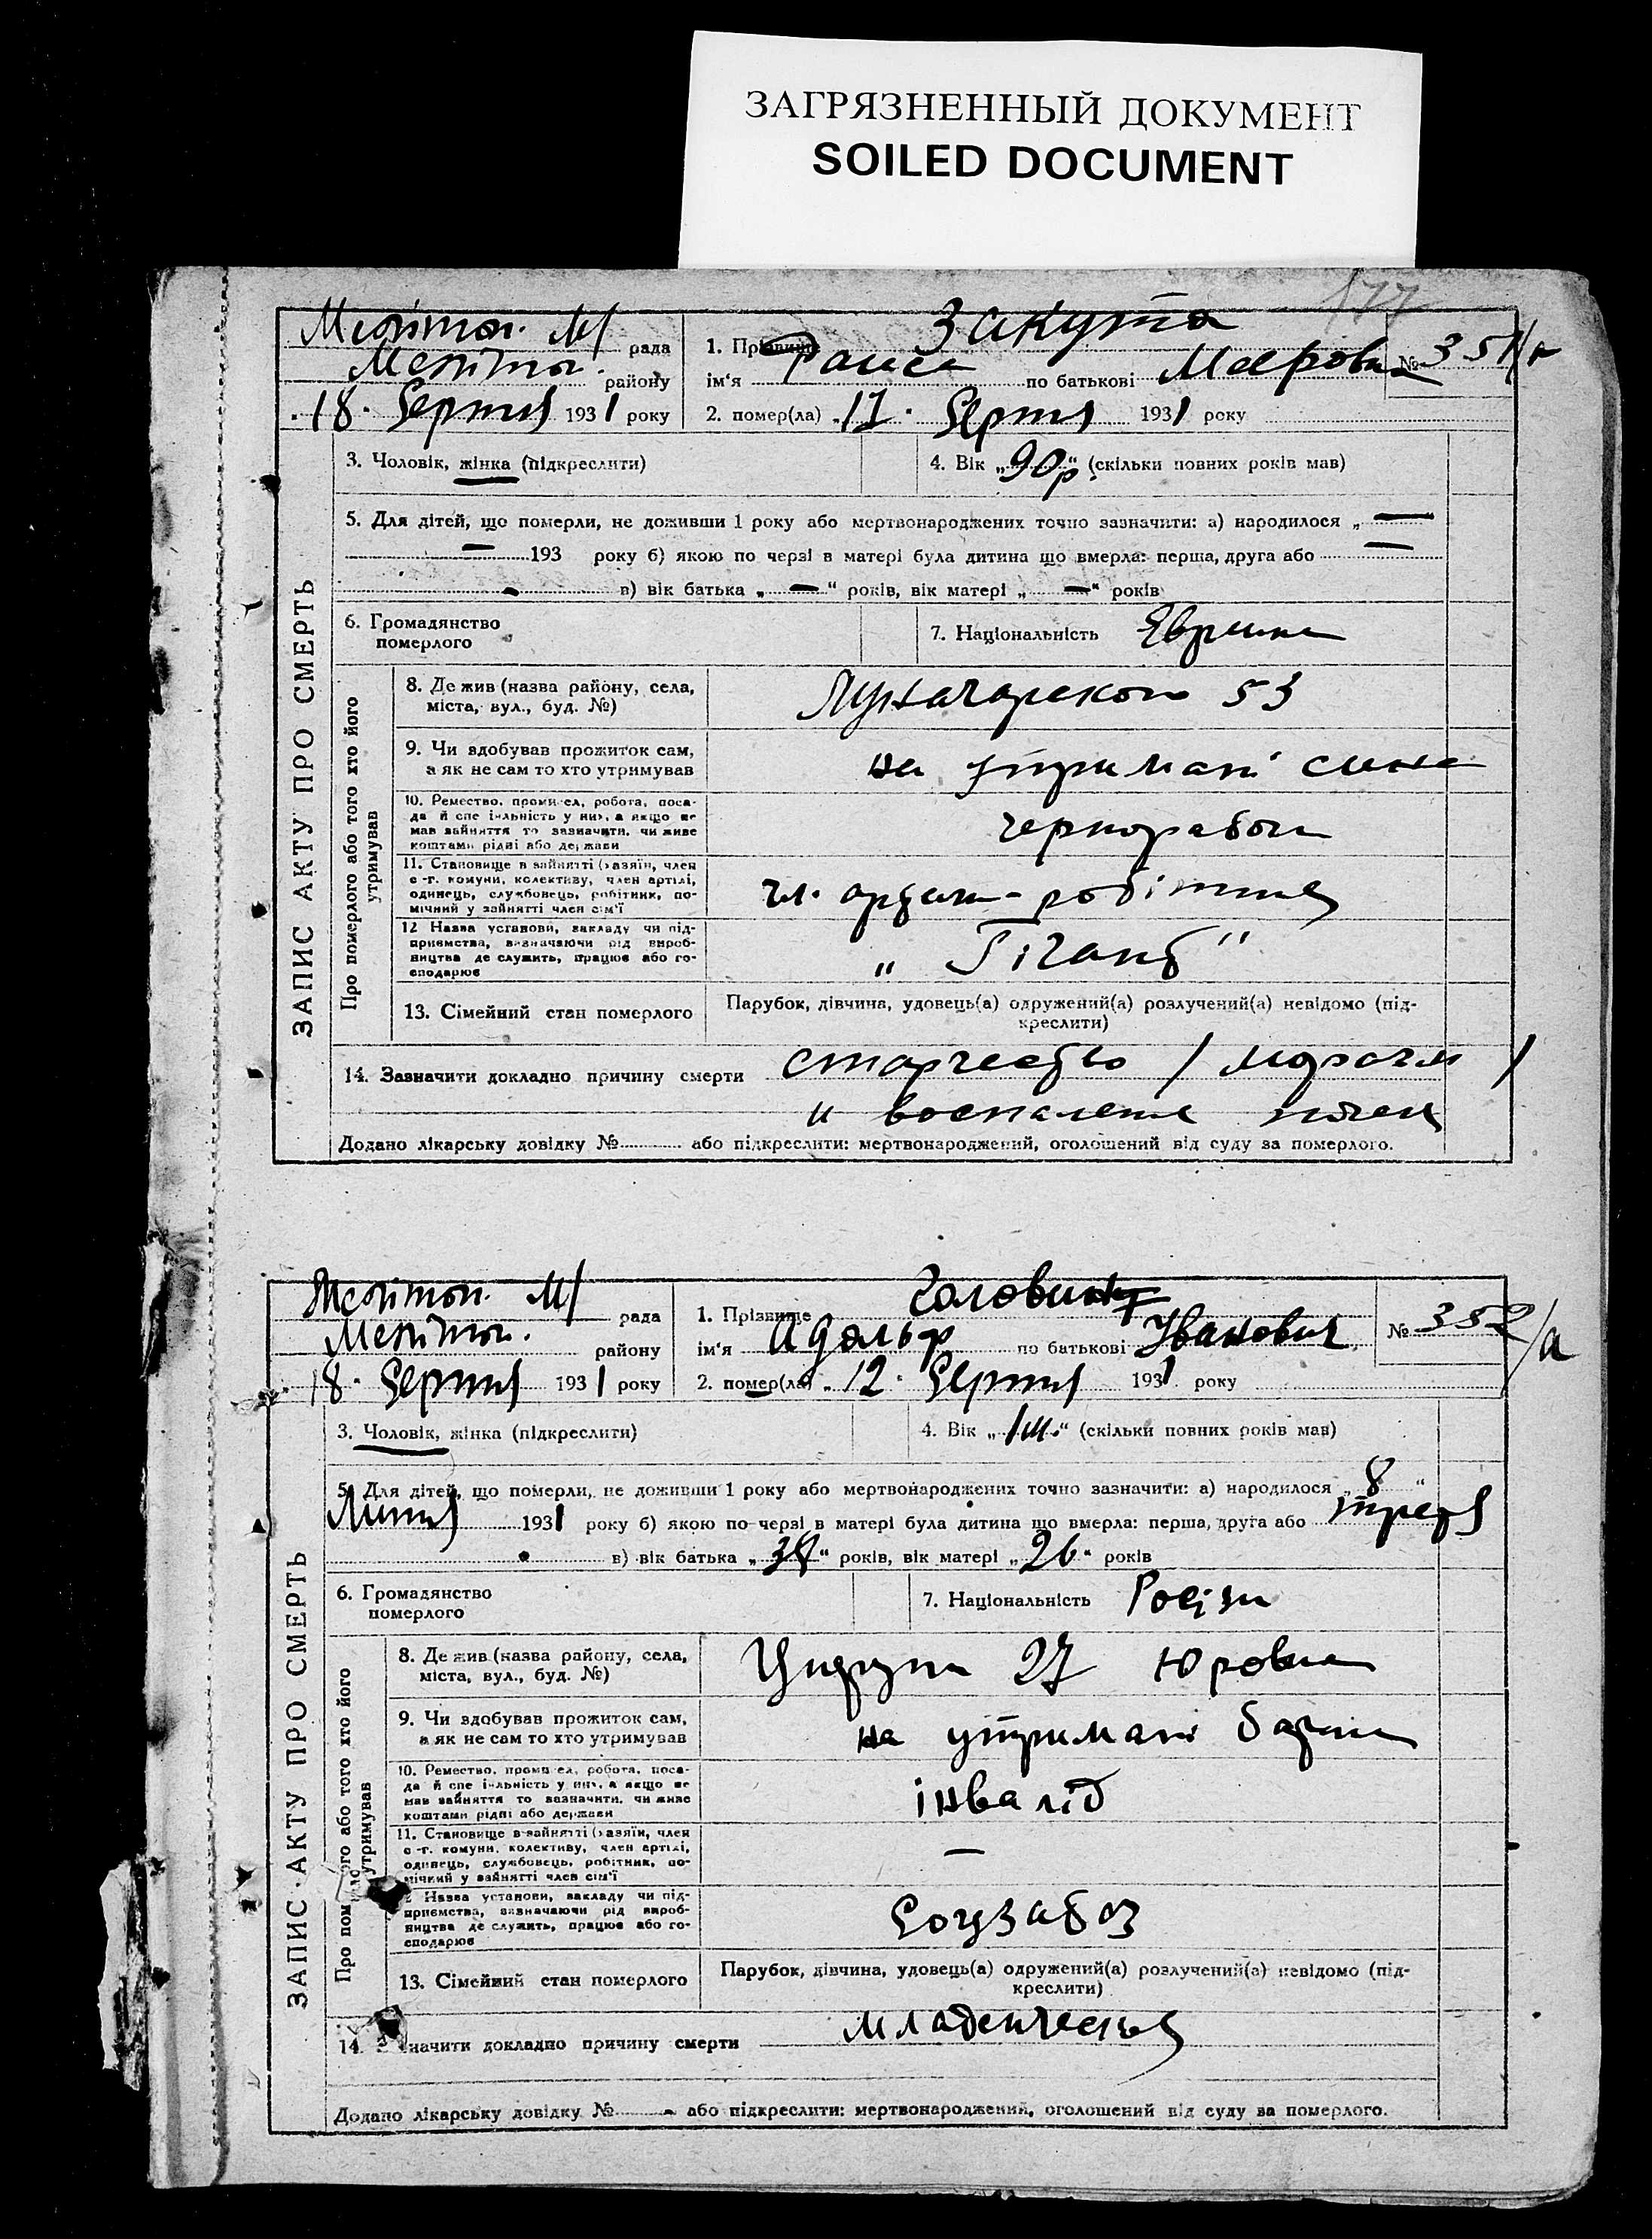 ЗАГРЯЗНЕННЫЙ ДОКУМЕНТ
SOILED DOCUMENT
177
ЗАПИС АКТУ ПРО СМЕРТЬ
Меліітоп. М/ рада
Меліітоп. району
18. Серпня 1931 року
1. Прізвище Закута
ім'я Раиса по батькові Меєровна
№ 351/а
2. помер(ла) „11. Серпня 1931 року
3. Чоловік, жінка (підкреслити)
4. Вік „90р." (скільки повних років мав)
5. Для дітей, що померли, не доживши 1 року або мертвонароджених точно зазначити: а) народилося „ —
— 193 року б) якою по черзі в матері була дитина що вмерла: перша, друга або —
в) вік батька „ — " років, вік матері „ — " років
6. Громадянство
померлого
7. Національність Єврейка
Про померлого або того хто його
утримував
8. Де жив (назва району, села,
міста, вул., буд. №)
Луначарского 53
9. Чи здобував прожиток сам,
а як не сам то хто утримував
на утримані сина
10. Ремество, промисел, робота, поса-
да й спеціяльність у них, а якщо не
мав зайняття то зазначити, чи живе
коштами рідні або держави
чорнороб
11. Становище в зайнятті (хазяїн, член
с.-г. комуни, колективу, член артілі,
одинець, службовець, робітник, по-
мічний у зайнятті член сім'ї
чл. артілі - робітник
12 Назва установи, закладу чи під-
приємства, визначаючи рід вироб-
ництва де служить, працює або го-
сподарює
„ Гігант "
13. Сімейний стан померлого
Парубок, дівчина, удовець(а) одружений(а) розлучений(а) невідомо (під-
креслити)
14. Зазначити докладно причину смерти старчество /
и воспаление почек
Додано лікарську довідку № або підкреслити: мертвонароджений, оголошений від суду за померлого.
ЗАПИС АКТУ ПРО СМЕРТЬ
Меліітоп. М/ рада
Меліітоп. району
18. Серпня 1931 року
1. Прізвище
ім'я Адольф по батькові Іванович
№ 352/а
2. помер(ла) „12. Серпня 1931 року
3. Чоловік, жінка (підкреслити)
4. Вік „1м." (скільки повних років мав)
5. Для дітей, що померли, не доживши 1 року або мертвонароджених точно зазначити: а) народилося „8"
Липня 1931 року б) якою по черзі в матері була дитина що вмерла: перша, друга або третя
в) вік батька „38" років, вік матері „26" років
6. Громадянство
померлого
7. Національність
Про померлого або того хто його
утримував
8. Де жив (назва району, села,
міста, вул., буд. №)
27 Юровка
9. Чи здобував прожиток сам,
а як не сам то хто утримував
на утримані батька
10. Ремество, промисел, робота, поса-
да й спеціяльність у них, а якщо не
мав зайняття то зазначити, чи живе
коштами рідні або держави
інвалід
11. Становище в зайнятті (хазяїн, член
с.-г. комуни, колективу, член артілі,
одинець, службовець, робітник, по-
мічний у зайнятті член сім'ї
—
12 Назва установи, закладу чи під-
приємства, визначаючи рід вироб-
ництва де служить, працює або го-
сподарює
Соцзабоз
13. Сімейний стан померлого
Парубок, дівчина, удовець(а) одружений(а) розлучений(а) невідомо (під-
креслити)
14. Зазначити докладно причину смерти младенческая
Додано лікарську довідку № - або підкреслити: мертвонароджений, оголошений від суду за померлого.